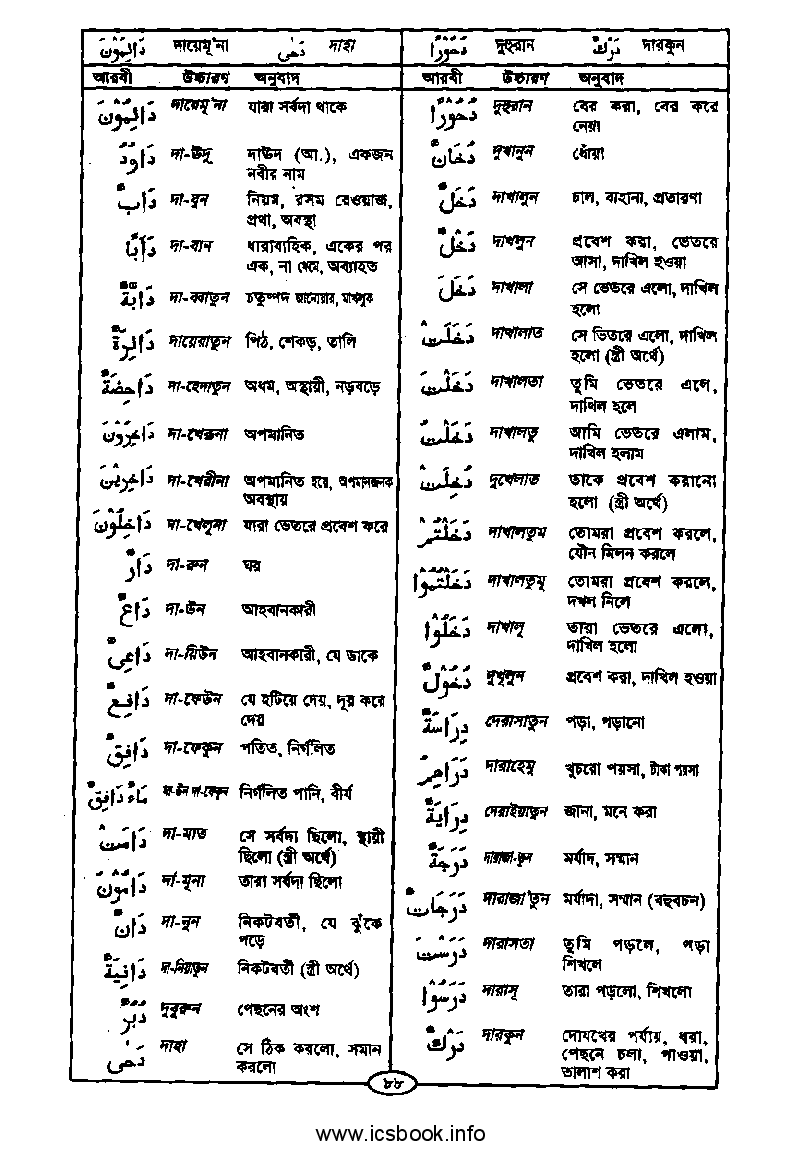 دَائِمُوْنَ দায়েমূ'না دَحٰى দাহা
আরবী উচ্চারণ অনুবাদ
دَائِمُوْنَ দায়েমূ'না যারা সর্বদা থাকে
دَاوٗدُ দা-উদু দাউদ (আ.), একজন
নবীর নাম
دَابٌ দা-বুন নিয়ম, রসম রেওয়াজ,
প্রথা, অবস্থা
دَأَبًا দা-বান ধারাবাহিক, একের পর
এক, না থেমে, অব্যাহত
دَابَّةٌ দা-ব্বাতুন চতুষ্পদ জানোয়ার, মাখলুক
دَائِرَةٌ দায়েরাতুন পিঠ, শেকড়, তালি
دَاحِضَةٌ দা-হেদাতুন অধম, অস্থায়ী, নড়বড়ে
دَاخِرُوْنَ দা-খেরুনা অপমানিত
دَاخِرِيْنَ দা-খেরীনা অপমানিত হয়ে, অপমানজনক
অবস্থায়
دَاخِلُوْنَ দা-খেলুনা যারা ভেতরে প্রবেশ করে
دَارٌ দা-রুন ঘর
دَاعٍ দা-উন আহবানকারী
دَاعِىٌ দা-য়িউন আহবানকারী, যে ডাকে
دَافِعٌ দা-ফেউন যে হটিয়ে দেয়, দূর করে
দেয়
دَافِقٌ দা-ফেকুন পতিত, নির্গলিত
مَاءٌ دَافِقٌ মা-উন দা-ফেকুন নির্গলিত পানি, বীর্য
دَامَتْ দা-মাত সে সর্বদা ছিলো, স্থায়ী
ছিলো (স্ত্রী অর্থে)
دَامُوْنَ দা-মূনা তারা সর্বদা ছিলো
دَانٌ দা-নুন নিকটবর্তী, যে ঝুঁকে
পড়ে
دَانِيَةٌ দা-নিয়াতুন নিকটবর্তী (স্ত্রী অর্থে)
دُبُرٌ দুবুরুন পেছনের অংশ
دَحٰى দাহা সে ঠিক করলো, সমান
করলো
دُحُوْرًا দুহুরান دَرْكٌ দারকুন
আরবী উচ্চারণ অনুবাদ
دُحُوْرًا দুহুরান বের করা, বের করে
নেয়া
دُخَانٌ দুখানুন ধোঁয়া
دَخَلٌ দাখালুন চাল, বাহানা, প্রতারণা
دَخْلٌ দাখলুন প্রবেশ করা, ভেতরে
আসা, দাখিল হওয়া
دَخَلَ দাখালা সে ভেতরে এলো, দাখিল
হলো
دَخَلَتْ দাখালাত সে ভিতরে এলো, দাখিল
হলো (স্ত্রী অর্থে)
دَخَلْتَ দাখালতা তুমি ভেতরে এলে,
দাখিল হলে
دَخَلْتُ দাখালতু আমি ভেতরে এলাম,
দাখিল হলাম
دُخِلَتْ দুখেলাত তাকে প্রবেশ করানো
হলো (স্ত্রী অর্থে)
دَخَلْتُمْ দাখালতুম তোমরা প্রবেশ করলে,
যৌন মিলন করলে
دَخَلْتُمُوْا দাখালতুমূ তোমরা প্রবেশ করলে,
দখল নিলে
دَخَلُوْا দাখালূ তারা ভেতরে এলো,
দাখিল হলো
دُخُوْلٌ দুখুলুন প্রবেশ করা, দাখিল হওয়া
دِرَاسَةٌ দেরাসাতুন পড়া, পড়ানো
دَرَاهِمُ দারাহেমু খুচরো পয়সা, টাকা পয়সা
دِرَايَةٌ দেরাইয়াতুন জানা, মনে করা
دَرَجَةٌ দারাজা-তুন মর্যাদ, সম্মান
دَرَجَاتٌ দারাজা'তুন মর্যাদা, সম্মান (বহুবচন)
دَرَسْتَ দারাসতা তুমি পড়লে, পড়া
শিখলে
دَرَسُوْا দারাসূ তারা পড়লো, শিখলো
دَرْكٌ দারকুন দোযখের পর্যায়, ধরা,
পেছনে চলা, পাওয়া,
তালাশ করা
৮৮
www.icsbook.info